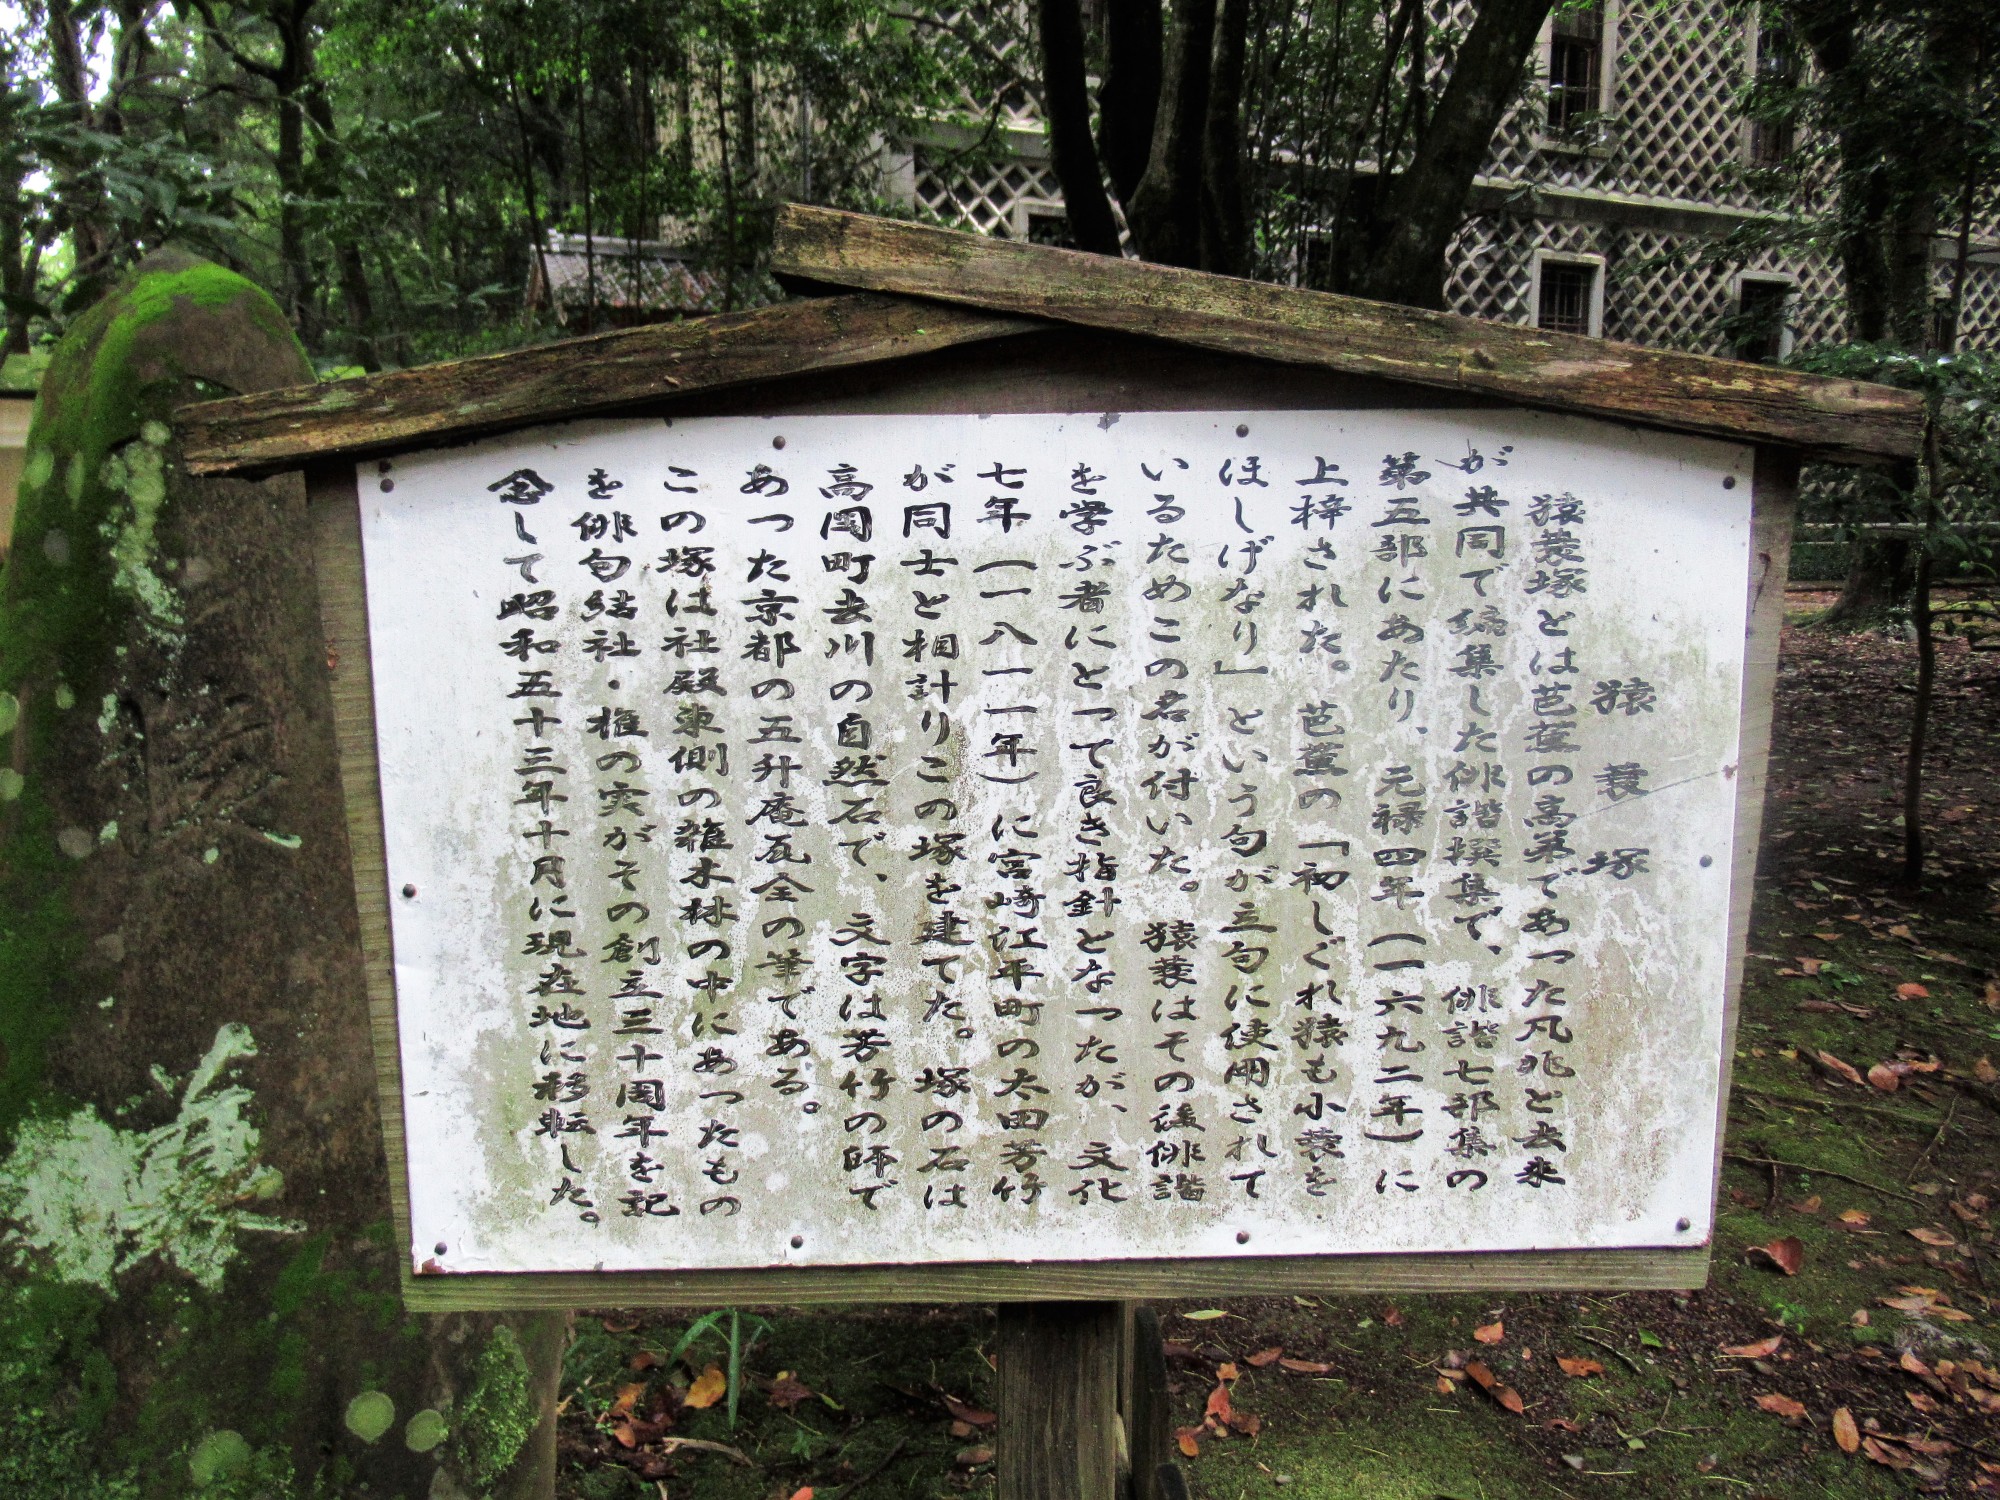 猿蓑塚
猿蓑塚とは芭蕉の高弟であった凡兆と去来
が共同で編集した俳諧撰集で、俳諧七部集の
第五部にあたり、元禄四年(一六九二年)に
上梓された。芭蕉の「初しぐれ猿も小蓑を
ほしげなり」という句が立句に使用されて
いるためこの名が付いた。猿蓑はその後俳諧
を学ぶ者にとって良き指針となったが、文化
七年(一八一一年)に宮崎江平町の太田芳竹
が同士と相計りこの塚を建てた。塚の石は
高岡町去川の自然石で、文字は芳竹の師で
あった京都の五升庵瓦全の筆である。
この塚は社殿東側の雑木林の中にあったもの
を俳句結社・椎の実がその創立三十周年を記
念して昭和五十三年十月に現在地に移転した。